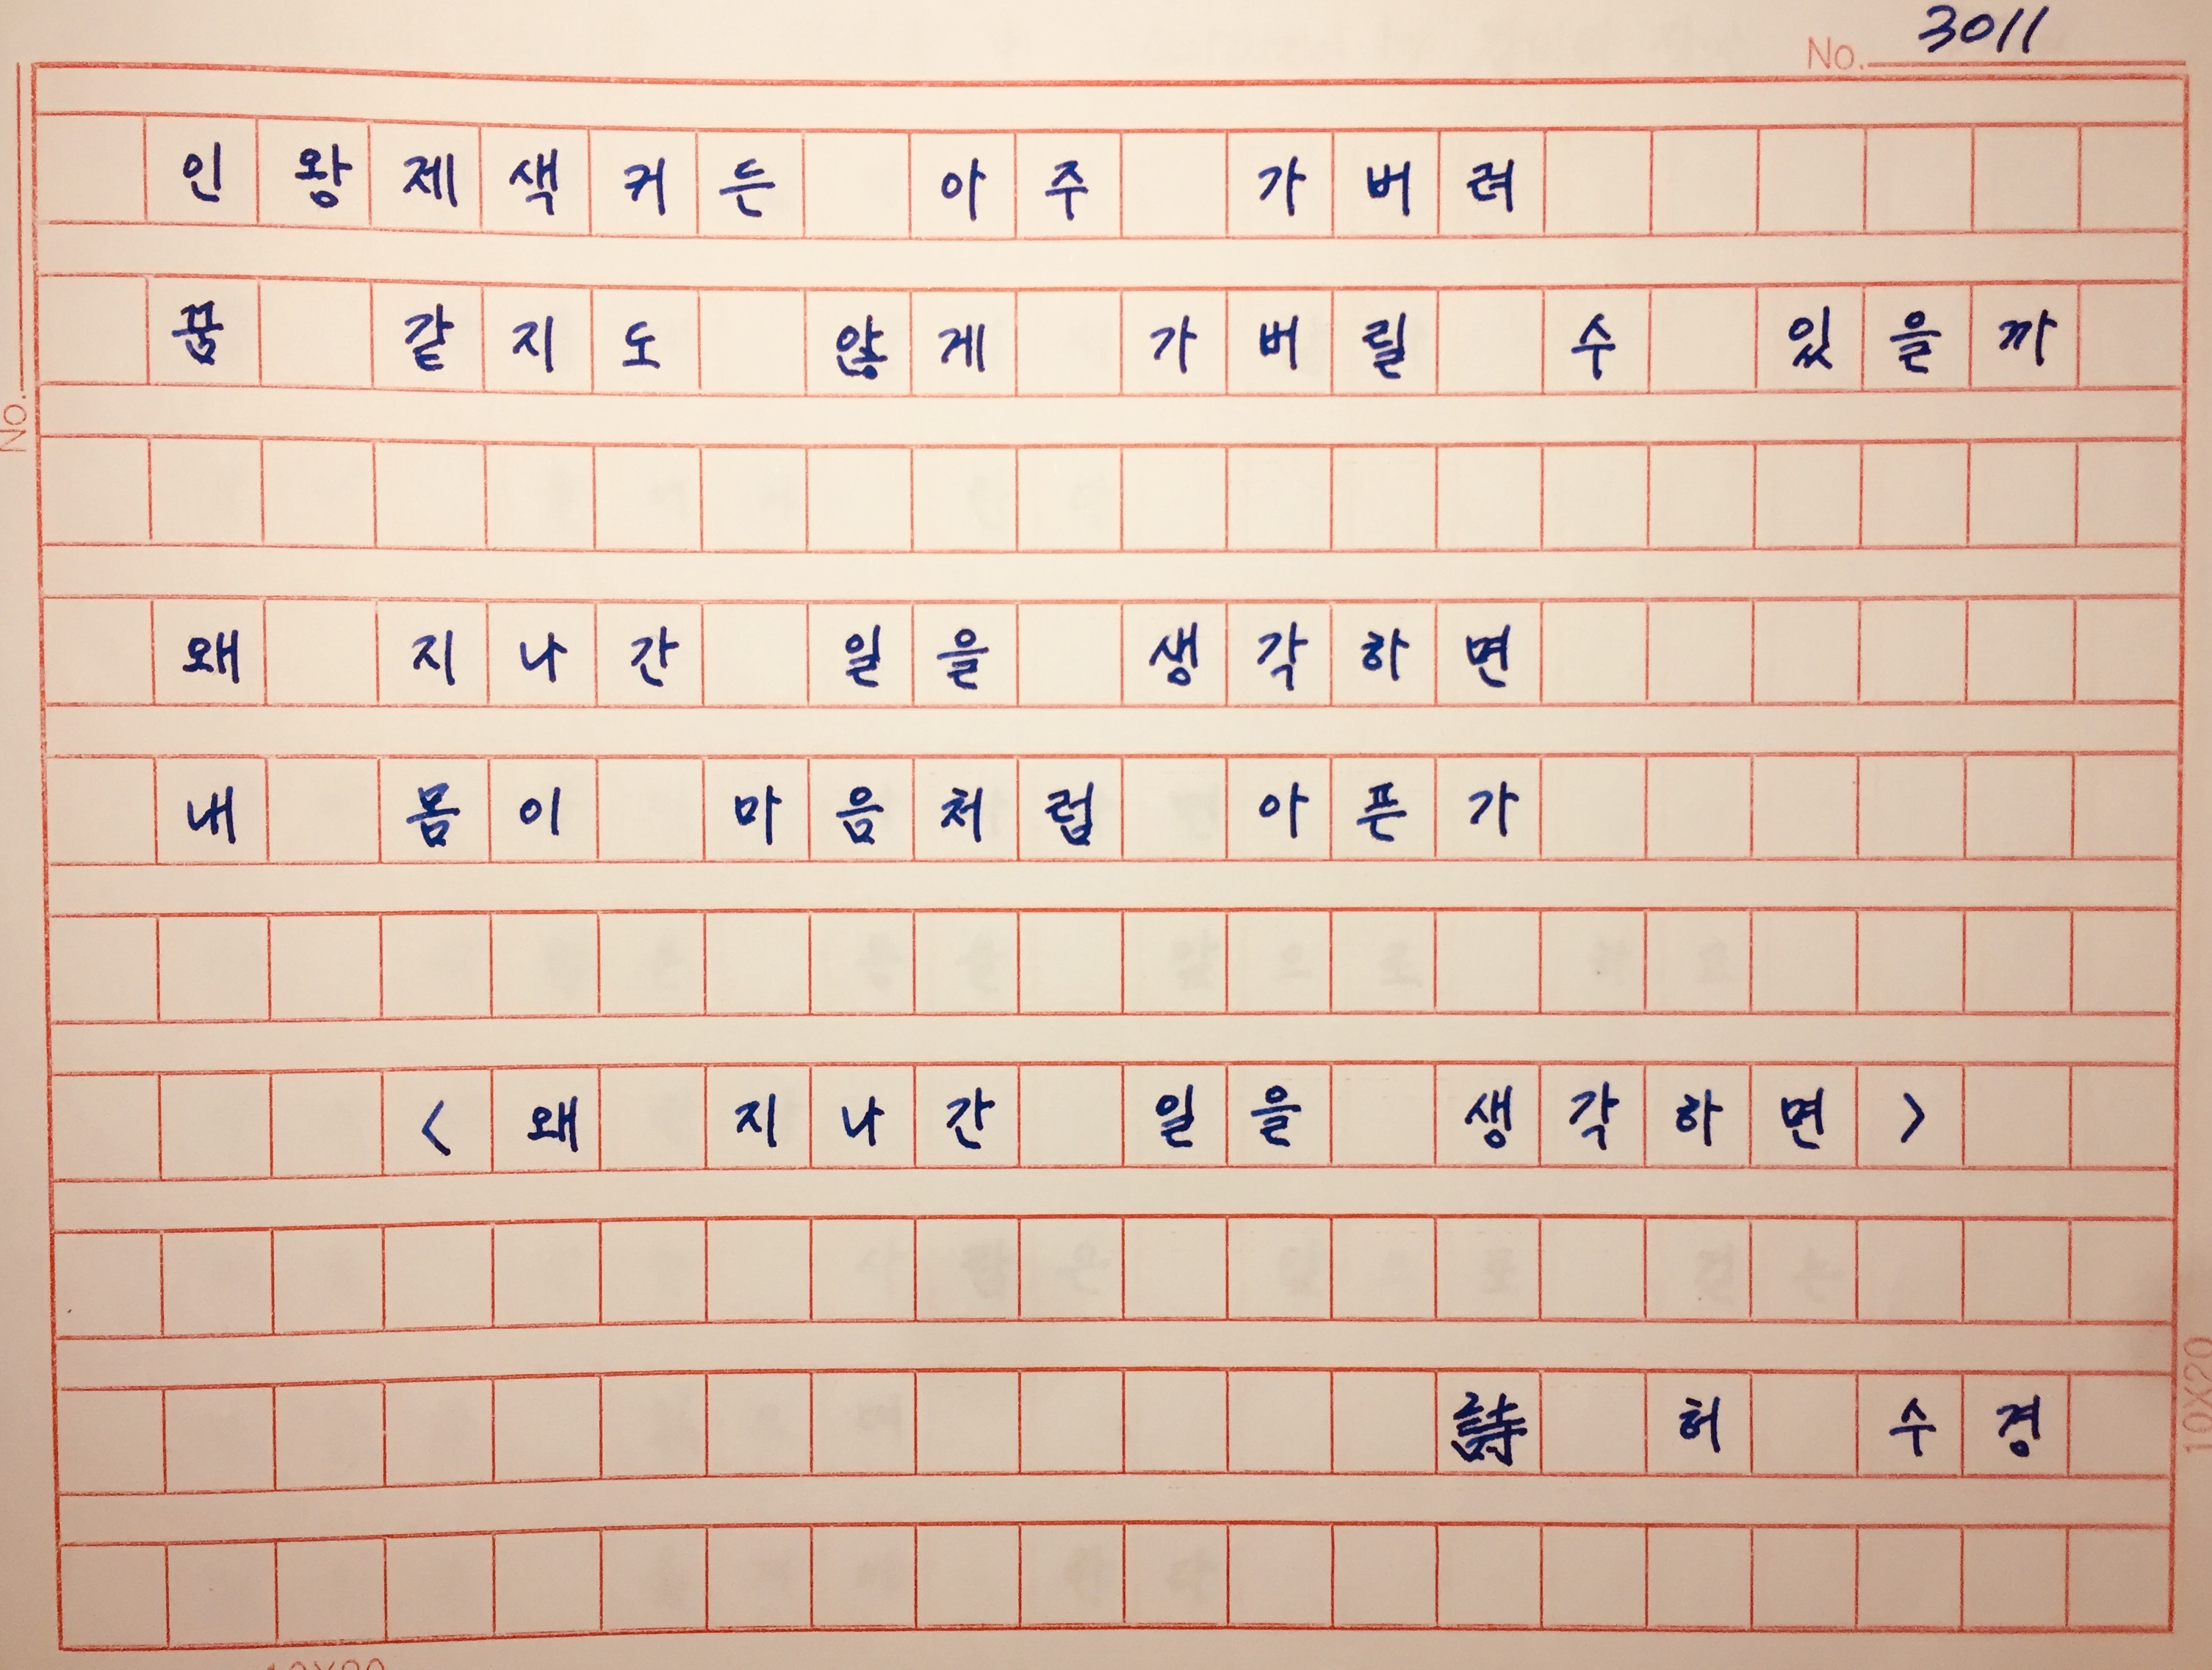 No. 3011
인왕제색커든 아주 가버려
꿈 같지도 않게 가버릴 수 있을까
No.
왜 지나간 일을 생각하면
내 몸이 마음처럼 아픈가
<왜 지나간 일을 생각하면>
詩 허 수경
10X20